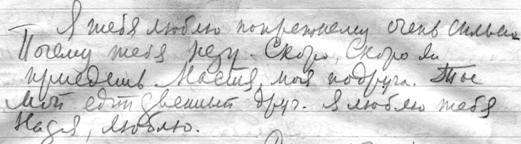 Я тебя люблю попрежнему очень сильно
Почему тебя нету. Скоро, Скоро ли
приедешь Мастия, моя подруга. Тое
Мой единственный друг. Я люблю тебя
Надя, люблю.